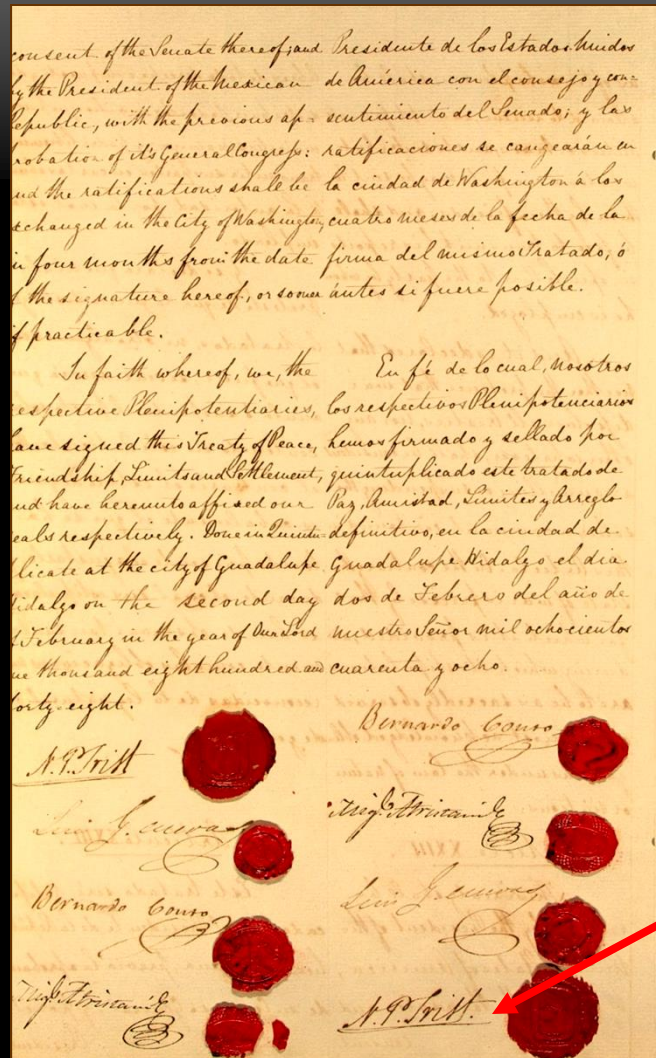 consent of the Senate thereof; and
by the President of the Mexican
Republic, with the previous ap-
robation of it's General Congress:
nd the ratifications shall be
exchanged in the City of Washington,
in four months from the date
f the signature hereof, or sooner
if practicable.
In faith whereof, we, the
respective Plenipotentiaries,
have signed this Treaty of Peace,
Friendship, Limits and Settlement,
nd have hereunto affixed our
eals respectively. Done in Quintu-
licate at the city of Guadalupe
Hidalgo on the second day
f February in the year of Our Lord
ne thousand eight hundred and
forty-eight.
N. P. Trist
Luis G. Cuevas
Bernardo Couto
Migl. Atristain
Presidente de los Estados Unidos
de América con el consejo y con-
sentimiento del Senado; y las
ratificaciones se cangearán en
la ciudad de Washington á los
cuatro meses de la fecha de la
firma del mismo Tratado, ó
ántes si fuere posible.
En fé de lo cual, nosotros
los respectivos Plenipotenciarios
hemos firmado y sellado por
quintuplicado este tratado de
Paz, Amistad, Límites y Arreglo
definitivo, en la ciudad de
Guadalupe Hidalgo el dia
dos de Febrero del año de
nuestro Señor mil ochocientos
cuarenta y ocho.
Bernardo Couto
Migl. Atristain
Luis G. Cuevas
N. P. Trist.